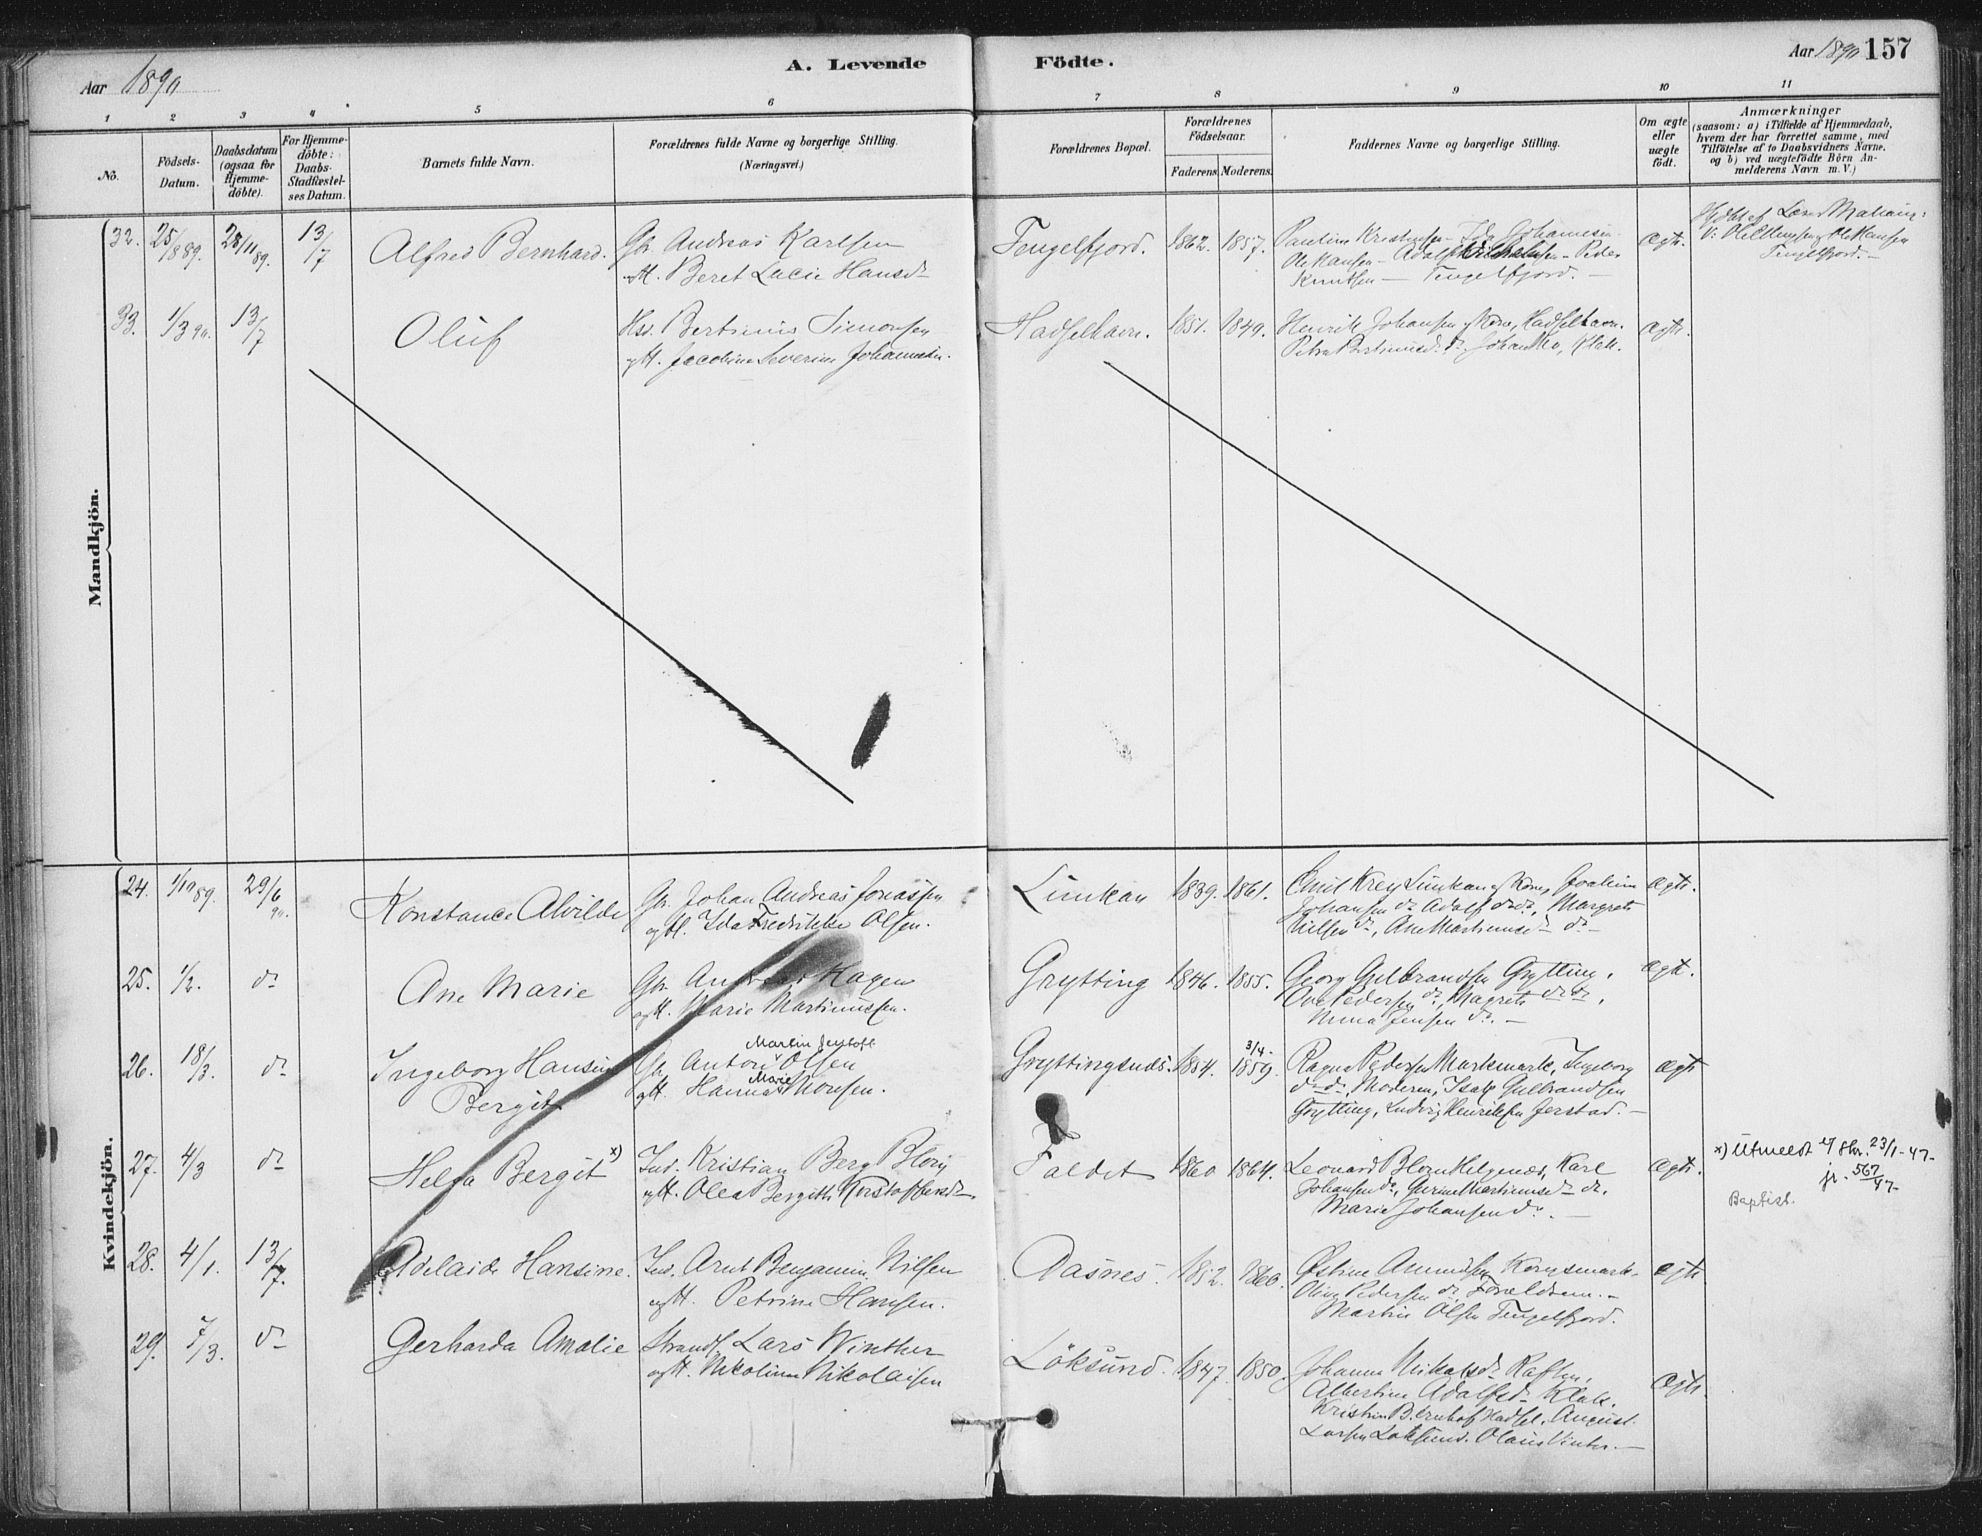 Aar 1890
A. Levende
Födte.
Aar 1890 157
1 2 3 4 5 6 7 8 9 10 11
No.
Födsels-
Datum.
Daabsdatum
(ogsaa for
Hjemme-
döbte).
For Hjemme-
döbte:
Daabs-
Stadfæstel-
ses Datum.
Barnets fulde Navn.
Forældrenes fulde Navne og borgerlige Stilling.
(Næringsvei.)
Forældrenes Bopæl.
Forældrenes
Födselsaar.
Faderens. Moderens.
Faddernes Navne og borgerlige Stilling.
Om ægte
eller
uægte
födt.
Anmærkninger
(saasom: a) i Tilfælde af Hjemmedaab,
hvem der har forrettet samme, med
Tilföielse af to Daabsvidners Navne.
og b) ved uægtefödte Börn An-
melderens Navn m. V.)
Mandkjön.
32. 25/8 89. 28/11 89. 13/7
Alfred Bernhard.
Andreas Karlsen
Beret Lucie Hansdr
Tengelfjord. 1862. 1857.
Paulina Kristensen - Ida Johannesen
Ole Hansen - Peder
Knutsen - Tengelfjord. -
ægte.
Ole Hansen
Tengelfjord. -
33. 1/3 90. 13/7
Oluf
Bertinus Simonsen
Jacobine Severine Johannesen.
Hadselhavn. 1851. 1849.
Henrik Johansen, Hadselhavn.
ægte.
Kvindekjön.
24. 1/10 89. 29/6 90.
Konstance Alvilde
Gbr. Johan Andreas Jonassen
Ida Fredrikke Olsen.
Limkan 1839. 1861.
Emil Krey Limkan, Joakim
Johansen do Adolf dodo, Margrete
Nilsen do, Ane Martinusdr do -
ægte.
25. 1/2. do
Ane Marie
Gbr. Andreas Hagen
Marie Martinussen.
Grytting 1846. 1855.
Georg Gulbrandsen Grytting,
Ove Pedersen do, Magrete dodo,
Jensen do. -
ægte.
26. 18/3. do
Ingeborg Hansine
Bergit
Martin Jentoft
Gbr. Anton Olsen
Marie
Hanna Monsen.
Gryttingsnes. 1854. 3/4- 1859.
Ragna Pedersen Markmark, Ingeborg
dodo, Moderen, Isak Gulbrandsen
Grytting, Ludvig Henriksen Jerstad. -
ægte
27. 4/3 do
Helga Bergit x)
Ind. Kristian Berg Blom
Olea Bergitte Kristoffersdr.
Faldet 1860 1864.
Leonard Blom Helgenes, Karl
Johansen do, Martinusdr do,
Marie Johansen do. -
ægte.
x) Utmeldt 23/1-47-
jr. 567/47-
Baptist.
28. 4/1. 13/7.
Adelaide Hansine.
Ind. Arnt Benjamin Nilsen
Petrine Hansen.
Dasnes. 1852. 1860.
Olina Pedersen do Forældrene. -
Martin Olsen Tengelfjord.
ægte
29. 7/3. do
Gerharda Amalie
Strands. Lars Winther
Nikoline Nikolaisen
Löksund. 1847. 1850.
Albertine Adolfsdr Klak.
Hadsel. August
Larsen Löksund. Olaus Vinter. -
ægte.